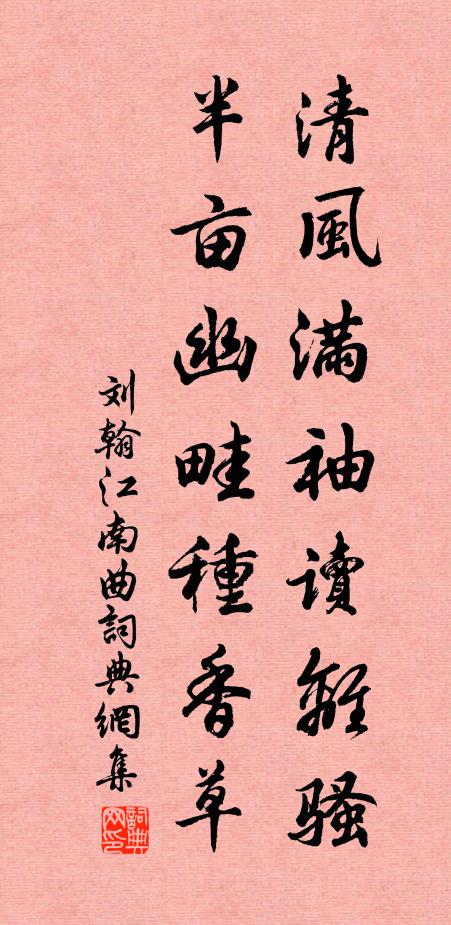 清風滿袖读離骚
半亩幽畦種香草
刘翰江南曲詞典網集
詞典网印